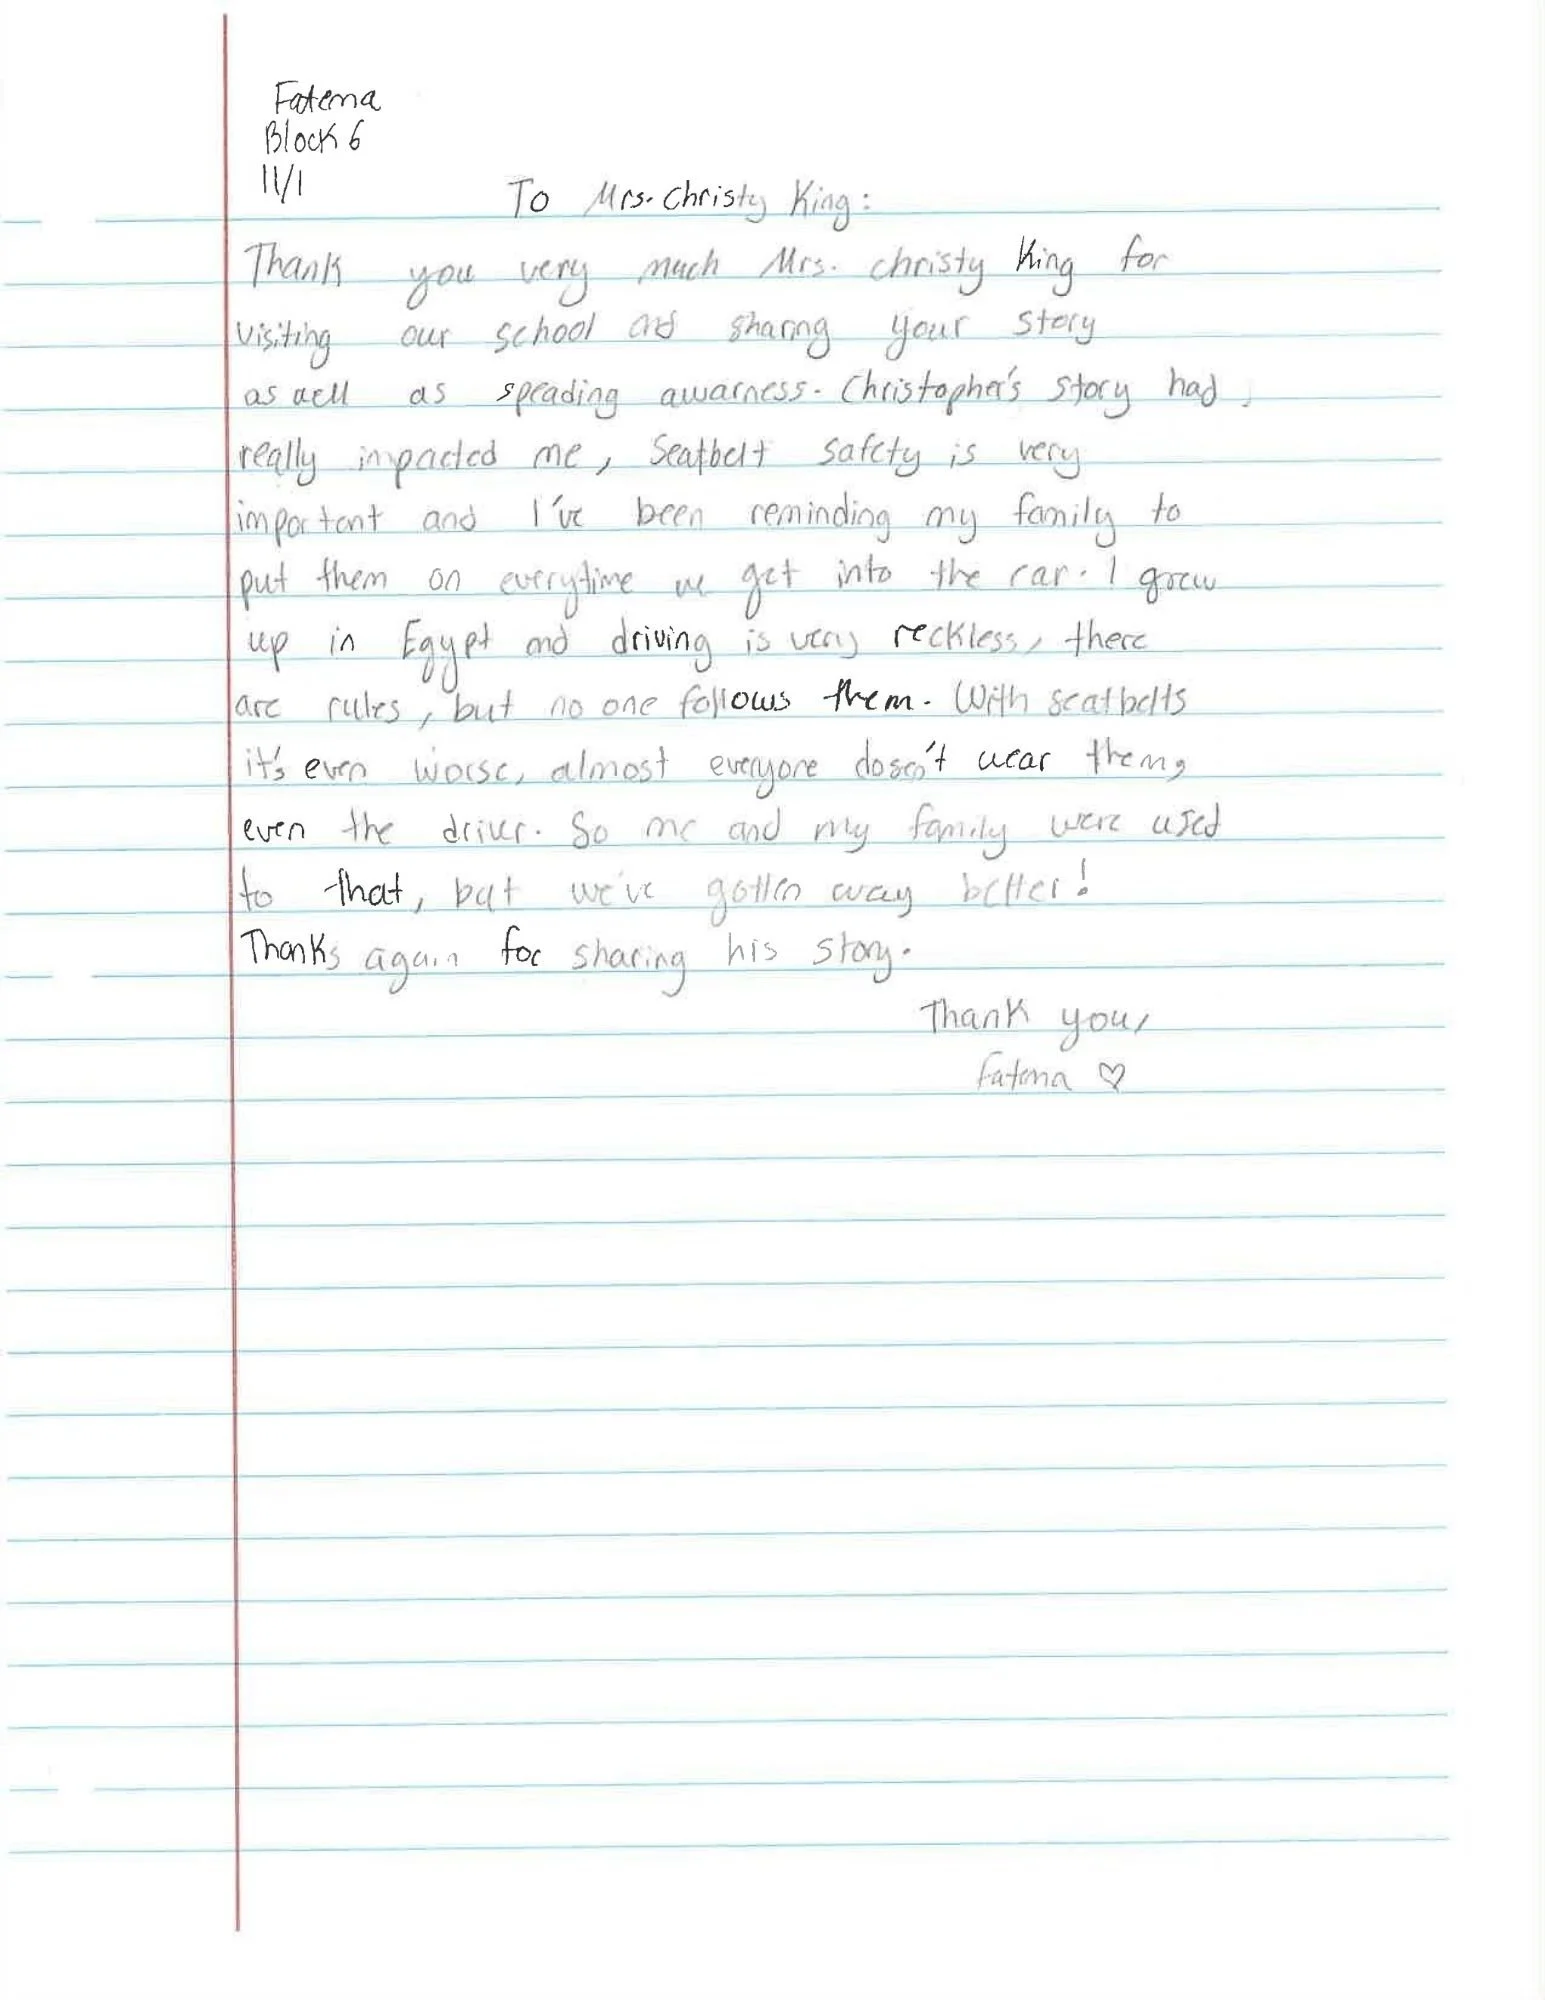 Fatema
Block 6
11/1
To Mrs. Christy King:
Thank you very much Mrs. christy King for
visiting our school and sharing your story
as well as spreading awarness. Christopher's story had
really impacted me, Seatbelt safety is very
important and I've been reminding my family to
put them on everytime we get into the car. I grew
up in Egypt and driving is very reckless, there
are rules, but no one follows them. With seatbelts
it's even worse, almost everyone dosen't wear them,
even the driver. So me and my family were used
to that, but we've gotten way better!
Thanks again for sharing his story.
Thank you,
Fatema ♡